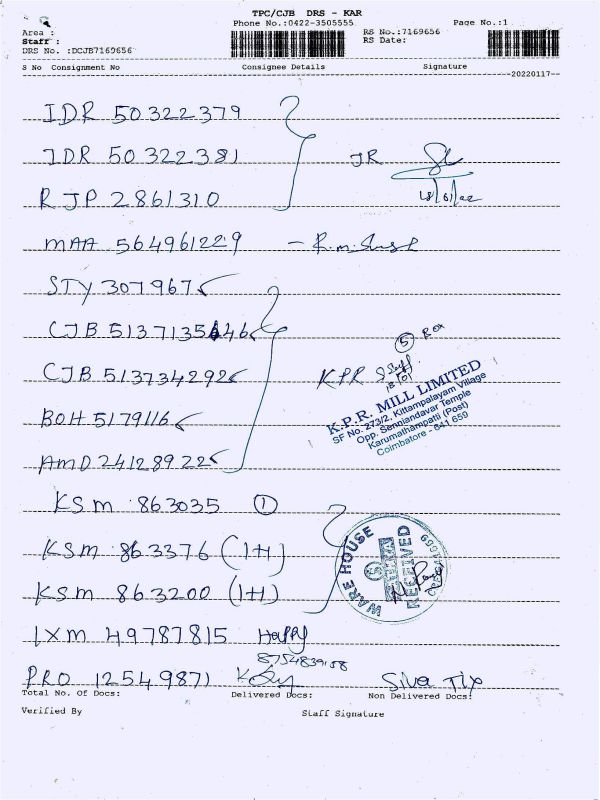 TPC/CJB DRS - KAR
Phone No.:0422-3505555 Page No.:1
Area : RS No.:7169656
Staff : RS Date:
DRS No. :DCJB7169656
S No Consignment No Consignee Details Signature
20220117
IDR 50322379
IDR 50322381 JR
RJP 2861310 18/01/22
MAA 564961229
STY 307967
CJB 513713546
CJB 513734292 KPR Staff
18/01
5 Box
K.P.R. MILL LIMITED
SF No. 273/2, Kittampalayam Village
Opp. Senniandavar Temple
Karumathampatti (Post)
Coimbatore - 641 659
BOH 5179116
AMD 241289222
KSM 863035 1
KSM 863376 (1+1)
KSM 863200 (1+1)
WARE HOUSE
RECEIVED
IXM 49787815 Happy
8754839158
PRO 12549871 Siva Tix
Total No. Of Docs: Delivered Docs: Non Delivered Docs:
Verified By Staff Signature